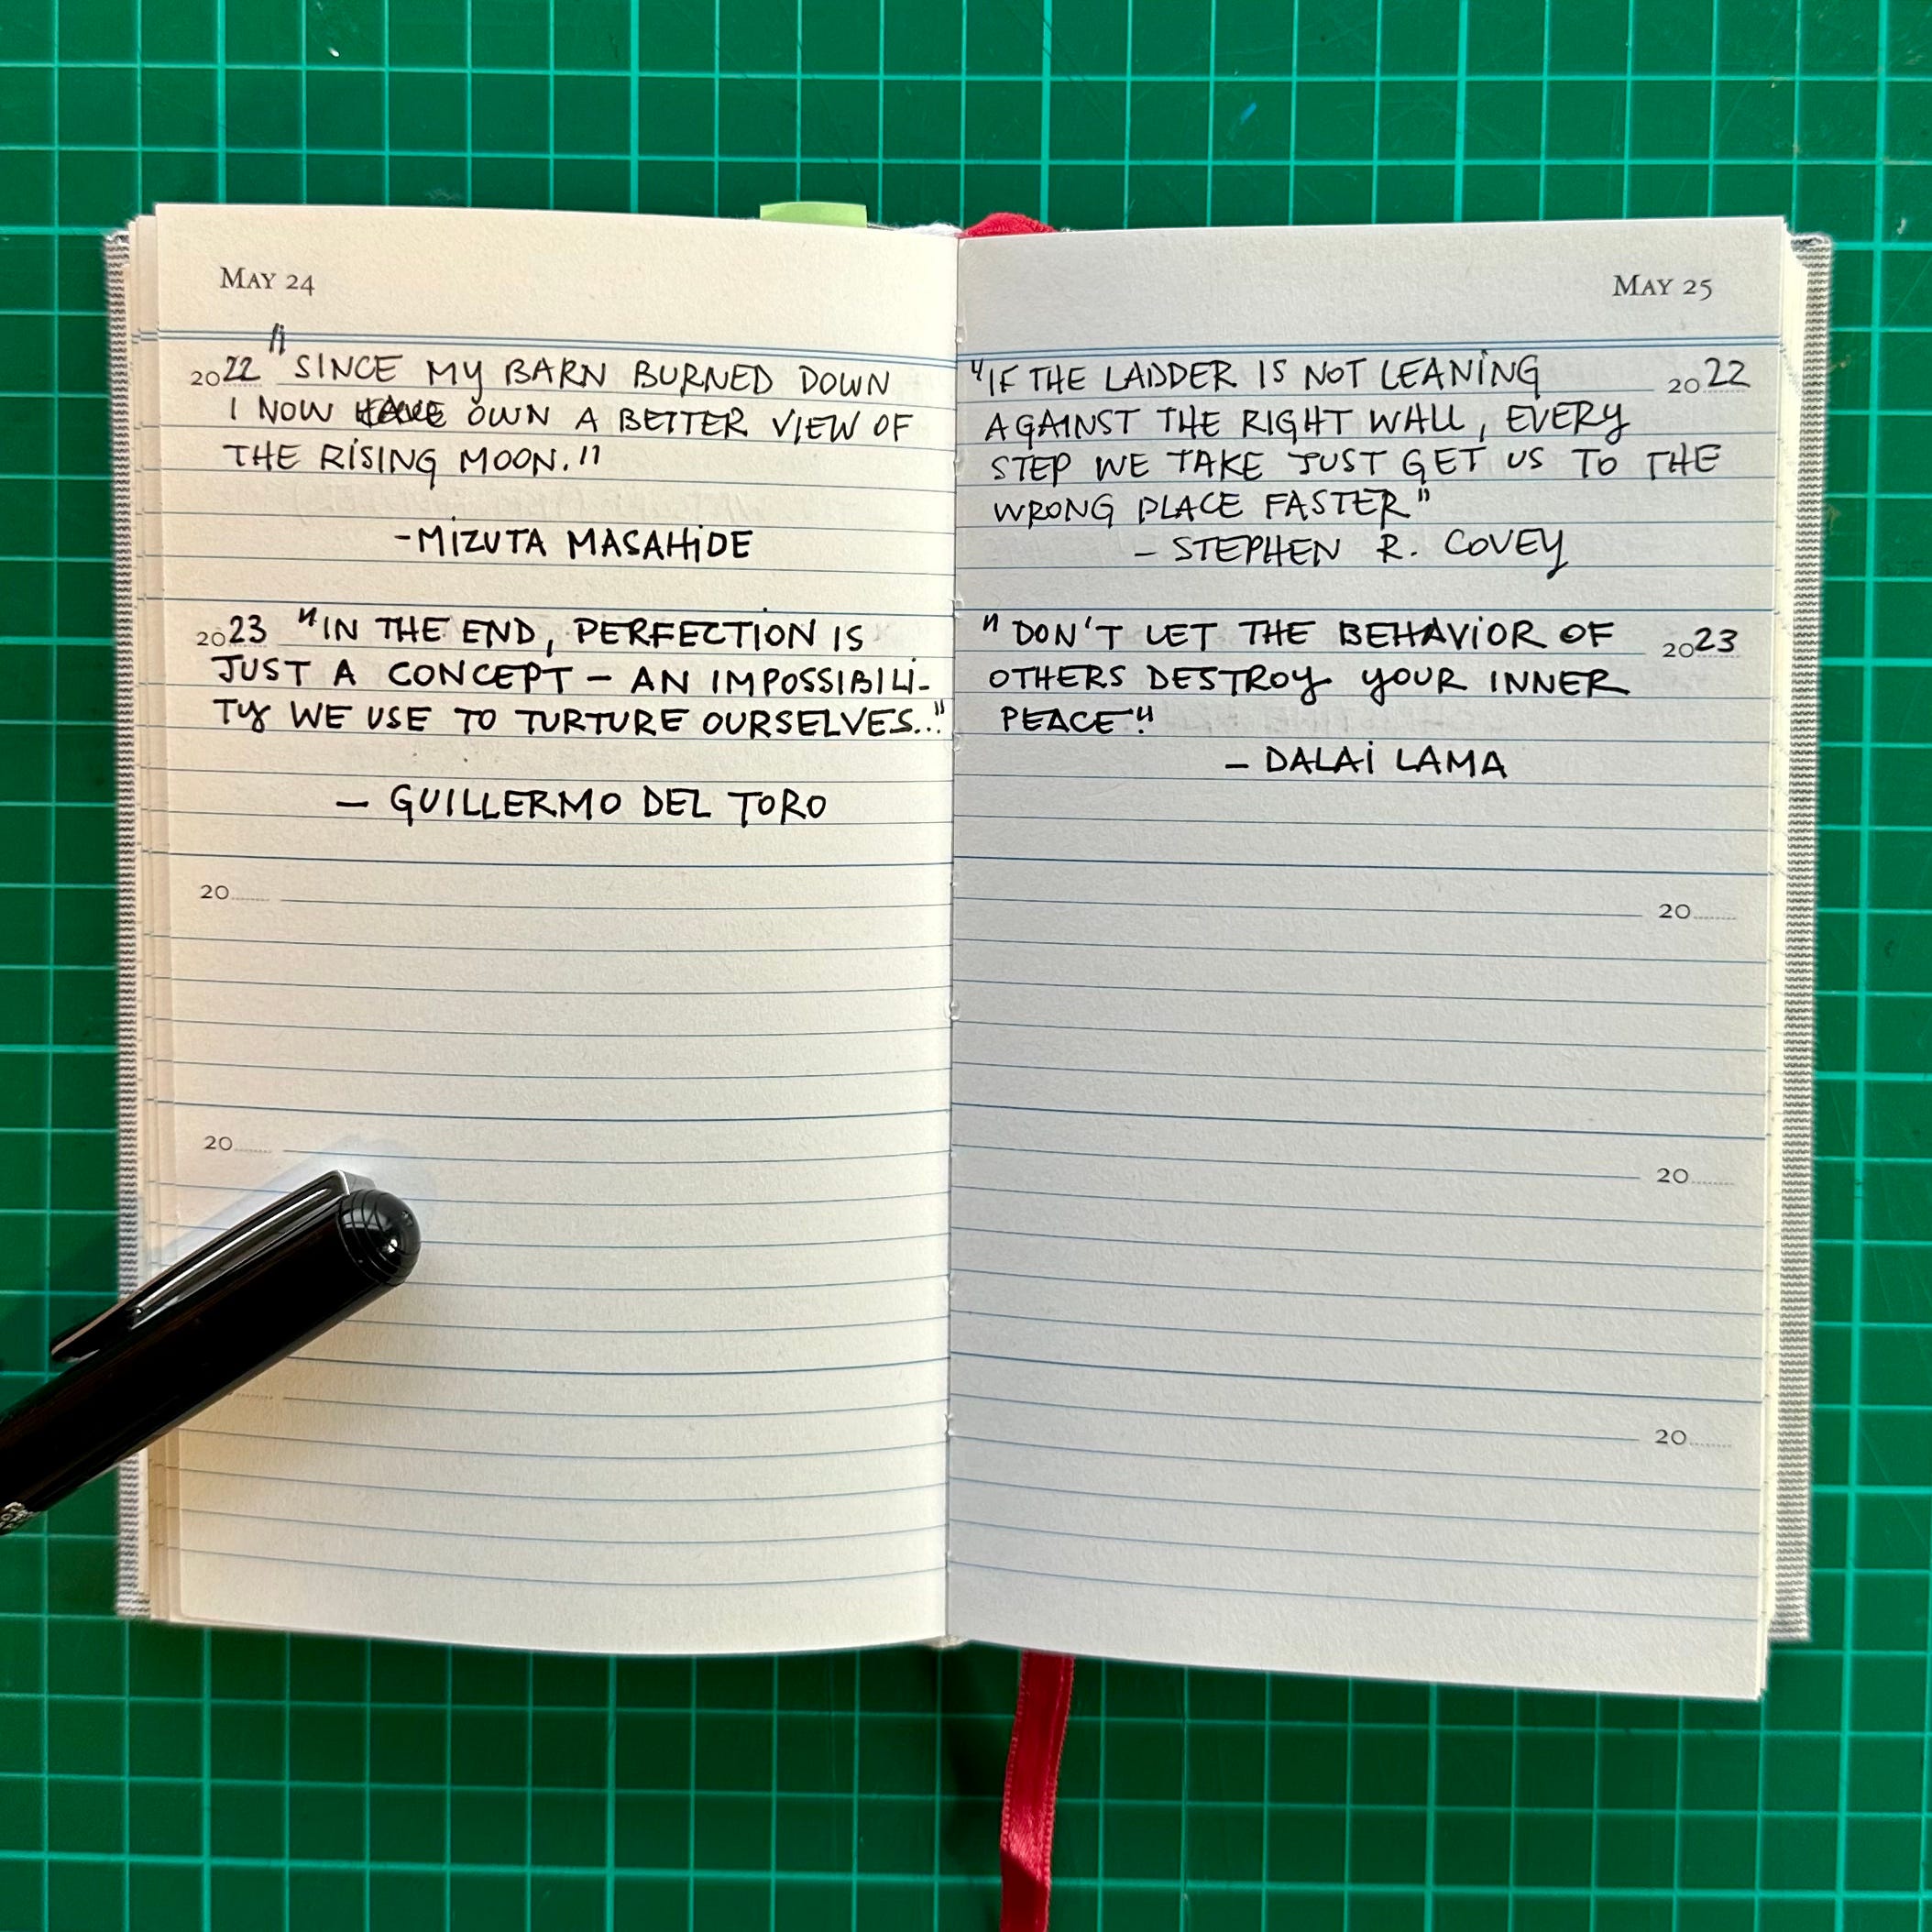 MAY 24
2022 "SINCE MY BARN BURNED DOWN
I NOW OWN A BETTER VIEW OF
THE RISING MOON."
-MIZUTA MASAHIDE
2023 "IN THE END, PERFECTION IS
JUST A CONCEPT - AN IMPOSSIBILI-
TY WE USE TO TURTURE OURSELVES..."
- GUILLERMO DEL TORO
20
20
MAY 25
"IF THE LADDER IS NOT LEANING 2022
AGAINST THE RIGHT WALL, EVERY
STEP WE TAKE JUST GET US TO THE
WRONG PLACE FASTER"
- STEPHEN R. COVEY
"DON'T LET THE BEHAVIOR OF 2023
OTHERS DESTROY YOUR INNER
PEACE."
- DALAI LAMA
20
20
20